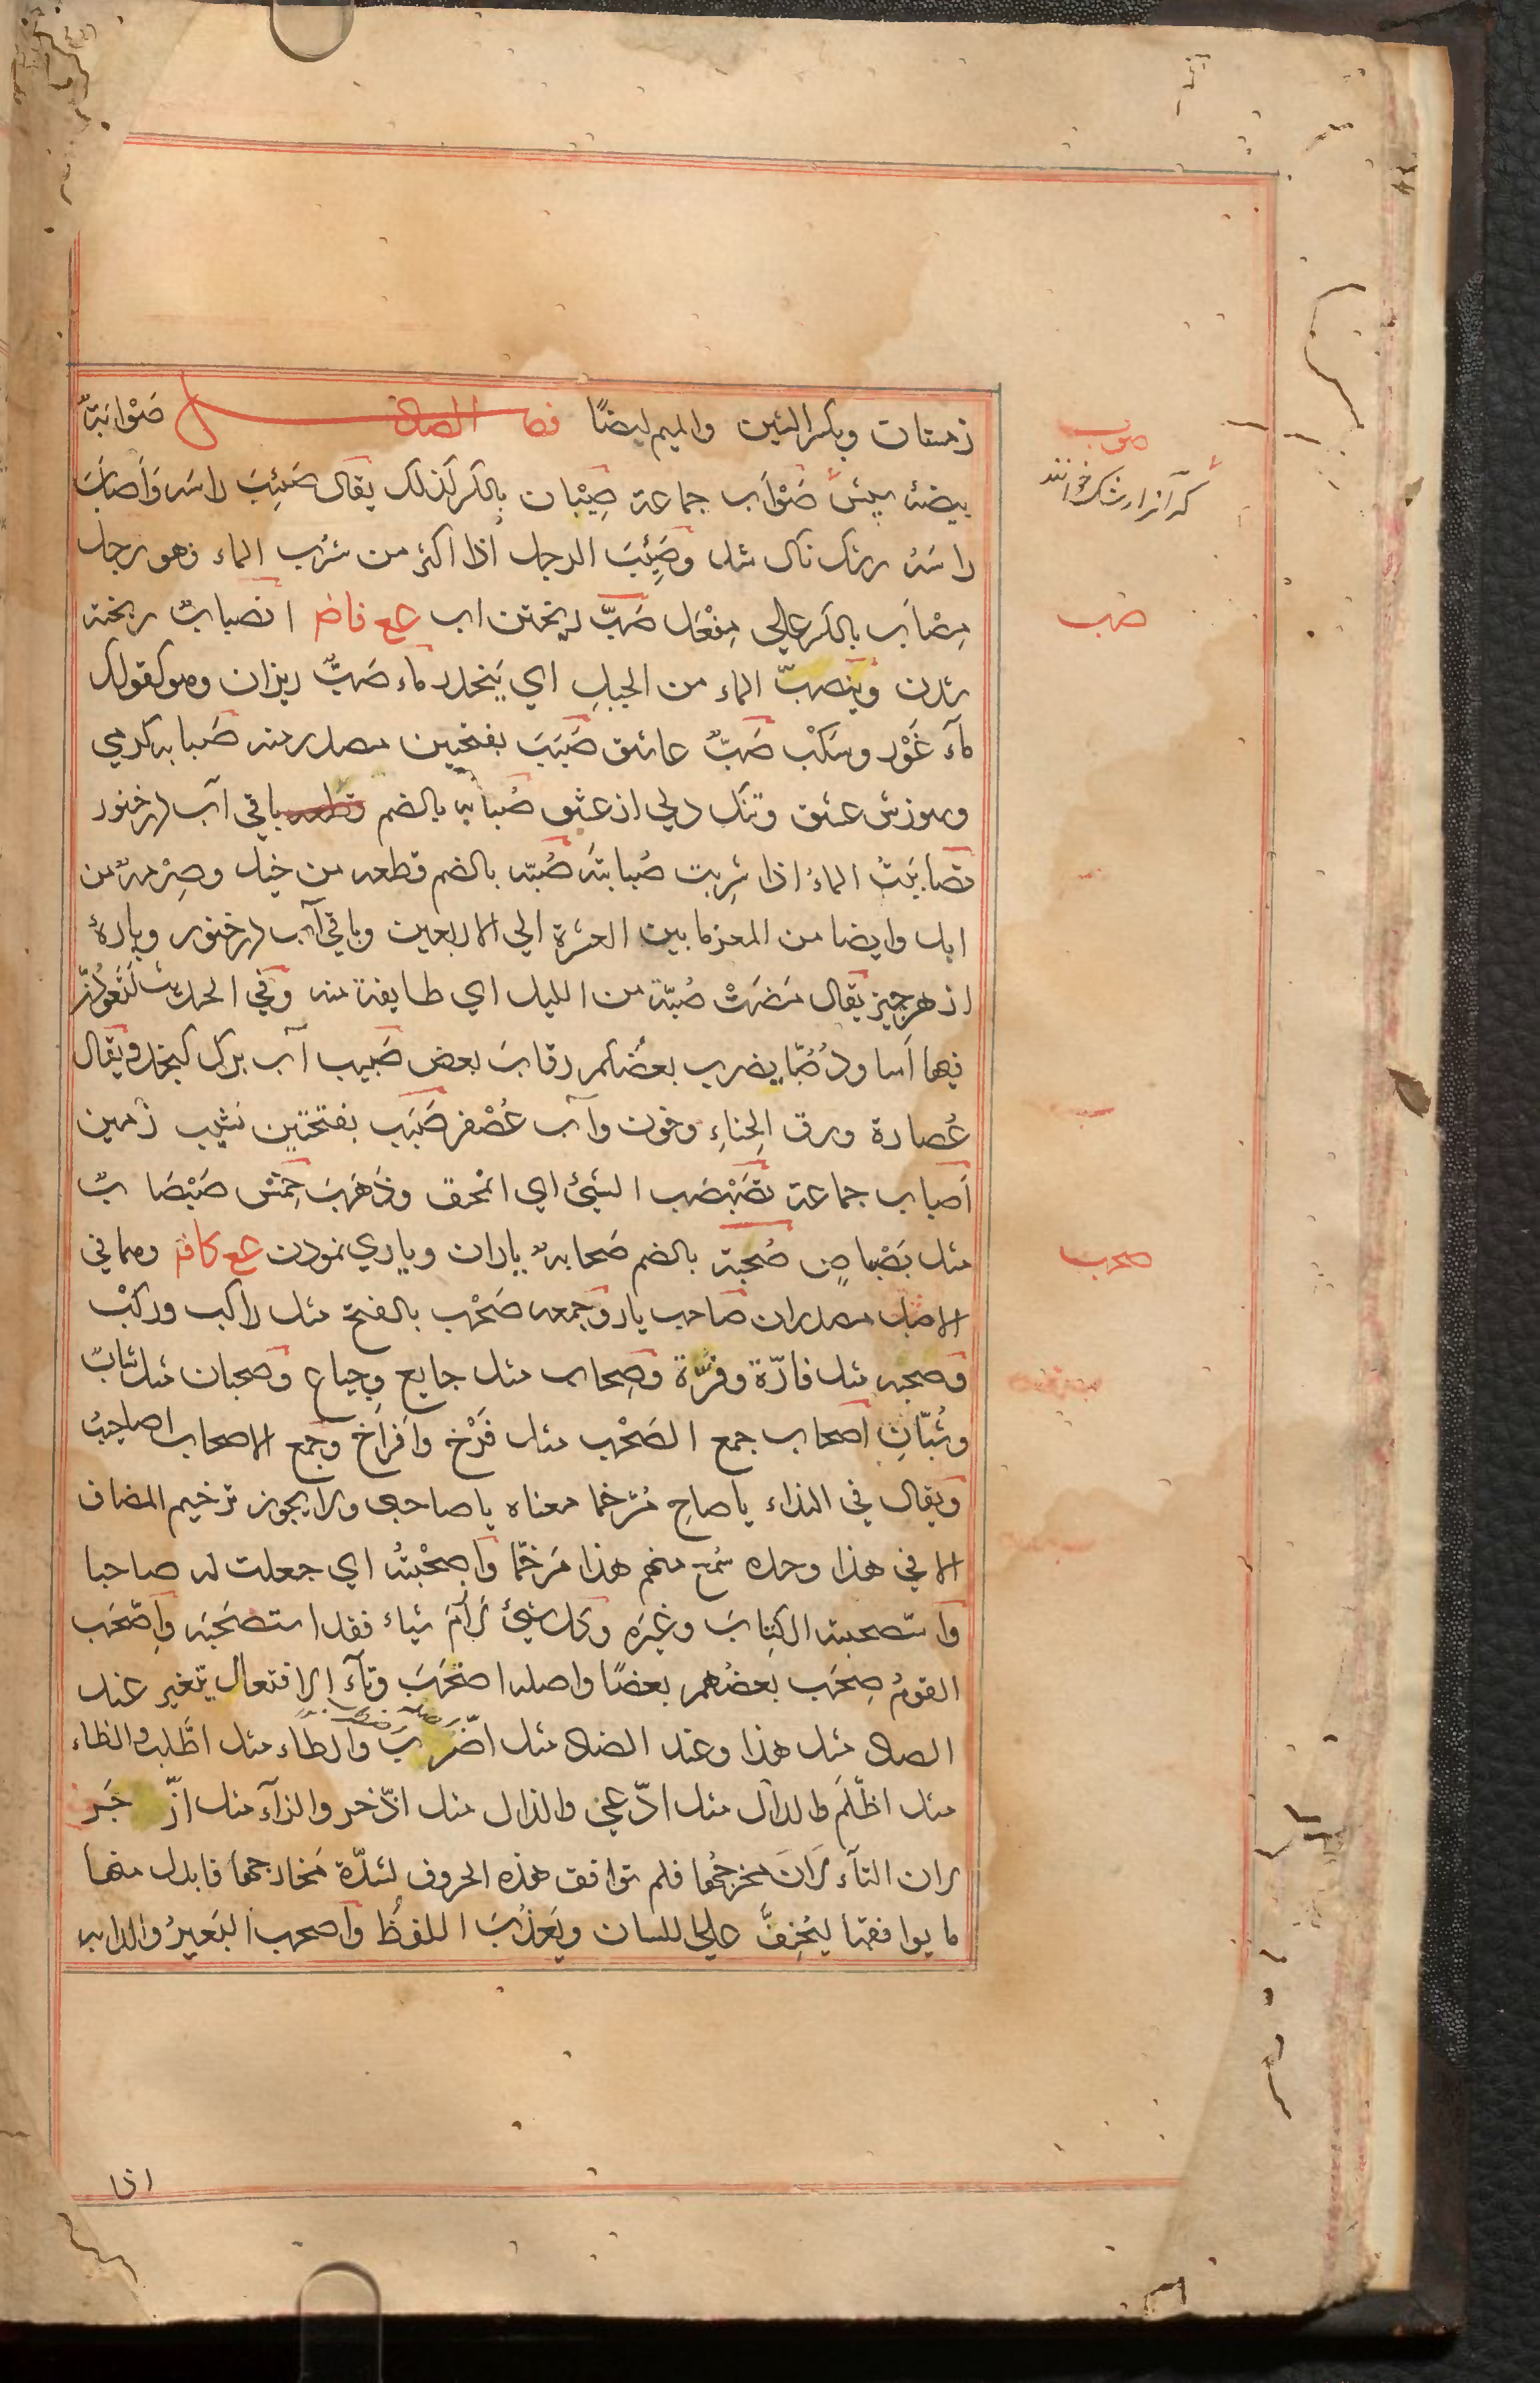 زمستان وبكسر الشين والميم ايضًا فصل الصاد صَوْابَةٌ
صوب
كه آنرا رشك خوانند
بيضهٔ شپش صَوْاَب جماعة صِيْبان بالكسر كذلك يقال صَئِبَ راسَه وَاَصاَبَ
راسَهُ رشك ناك شد وصَئِبَ الرجل اذا اكثر من شُرب الماء فهو رجل
مِصْاَب بالكسر علي مِفْعَل صَبّ ريختن اب عع فاض انصبابٌ ريخته
صب
شدن وينصبّ الماء من الجبلِ اي يَنحدر ماء صَبٌّ ريزان وهو كقولك
ماَء غَوْر وسَكْب صَبٌّ عاشق صَبَبَ بفتحتين مصدر منه صَبابه كرمي
وسوزش عشق وتنك دلي از عشق صُبابه بالضم باقي آب در خنور
تصابَبْتُ الماءَ اذا شرِبت صُبابتَه صُبّه بالضم قطعه من خيل وصِرْمهٌ من
ابل وايضا من المعز ما بين العشرة الي الاربعين وباقي آب در خنور وپارهٔ
از هر چيز يقال مَضَتْ صُبّة من الليل اي طايفة منه وفي الحديث لَتَعُودُنّ
فيها اَساودُ صُبًّا يضرب بعضُكم رقابَ بعض صَبيب آب برك كنجد ويقال
عُصارة ورق الحِناءِ وخون وآب عُصْفر صَبَب بفتحتين نشيب زمين
اَصباب جماعة تصَبْصَب الشئ اي انمحق وذَهَبَ خِمْسٌ صَبْصَابٌ
مثل بَصْباصٍ صُحْبة بالضم صَحابهٌ ياران وياري نمودن عع كافه وهما في
صحب
الاصل مصدران صاحب يار وجمعه صَحْب بالفتح مثل راكب وركَبْ
وصحبه مثل فارّة وفُرَّة وصِحاب مثل جايع وجياع وصحبان مثل شابّ
وشُبّانِ اصحاب جمع الصَحْب مثل فَرْخ وافراخ وجمع الاصحاب اصاحِيبُ
ويقال في النداء يا صاحِ مُرَخما معناه يا صاحبي ولا يجوز ترخيم المضاف
الا في هذا وحده سُمع منهم هذا مُرخمّا واصحَبْتُه اي جعلت له صاحبا
واستصحبته الكِتابَ وغيرَه وكل شيئ لاأَمَ شيئاء فقد استصحَبَه واصْحَب
القومُ صِحَب بعضُهمر بعضًا واصله اصْتَحَبَ وتآءُ الافتعال يتغير عند
الصاد مثل هذا وعند الضاد مثل اضّرَبَ والطاء مثل اطّلب والظاء
مثل اظّلَمَ والدال مثل ادّعي والذال مثل اذّخر والزآء مثل ازْدَجَر
لان التآء لاَنَ مخرجُها فلم توافق هذه الحروف لشدّة مَخارجها فابدل منها
ما يوافقها ليُخِفَّ علي اللسان ويَعْذُبَ اللفظُ واصحب البَعيرُ والدابه
اذا